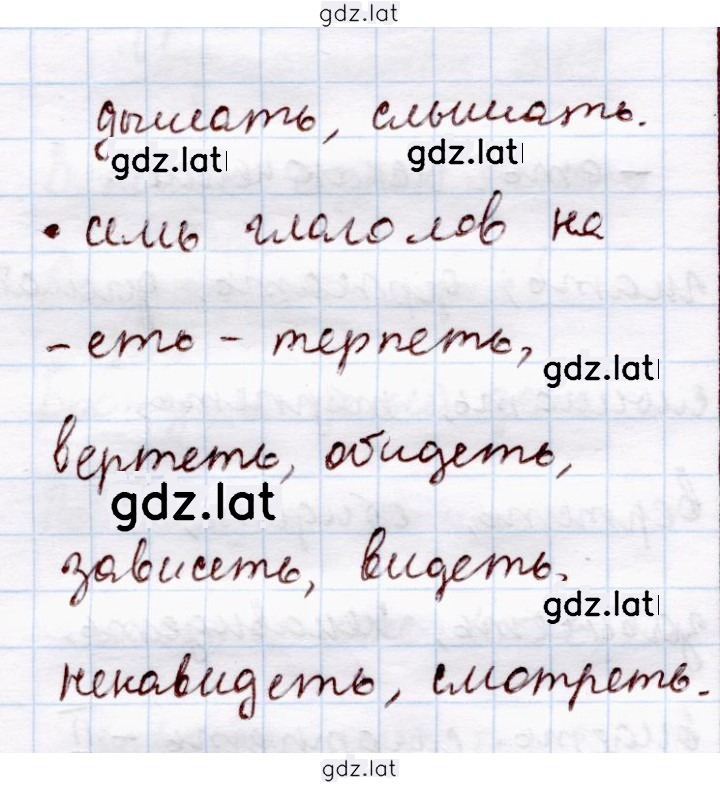 gdz.lat
дышать, слышать.
gdz.lat gdz.lat
• семь глаголов на
-еть - терпеть,
gdz.lat
вертеть, обидеть,
gdz.lat
зависеть, видеть,
gdz.lat
ненавидеть, смотреть.
gdz.lat